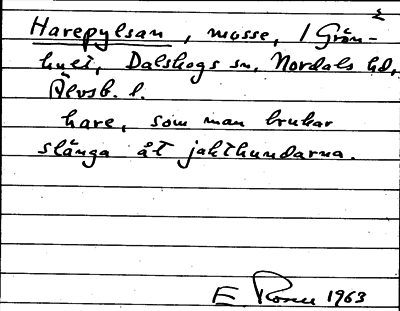 Harepylsan, mosse, 1 Grön-2
hult, Dalskogs sn, Nordals hd,
Älvsb. l.
hare, som man brukar
slänga åt jakthundarna.
E 1963